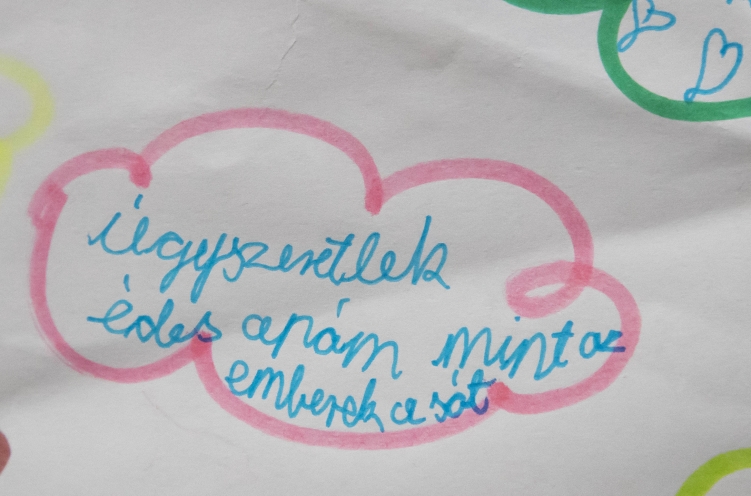 Úgyszeretlek
édes apám mint az
emberek a sót